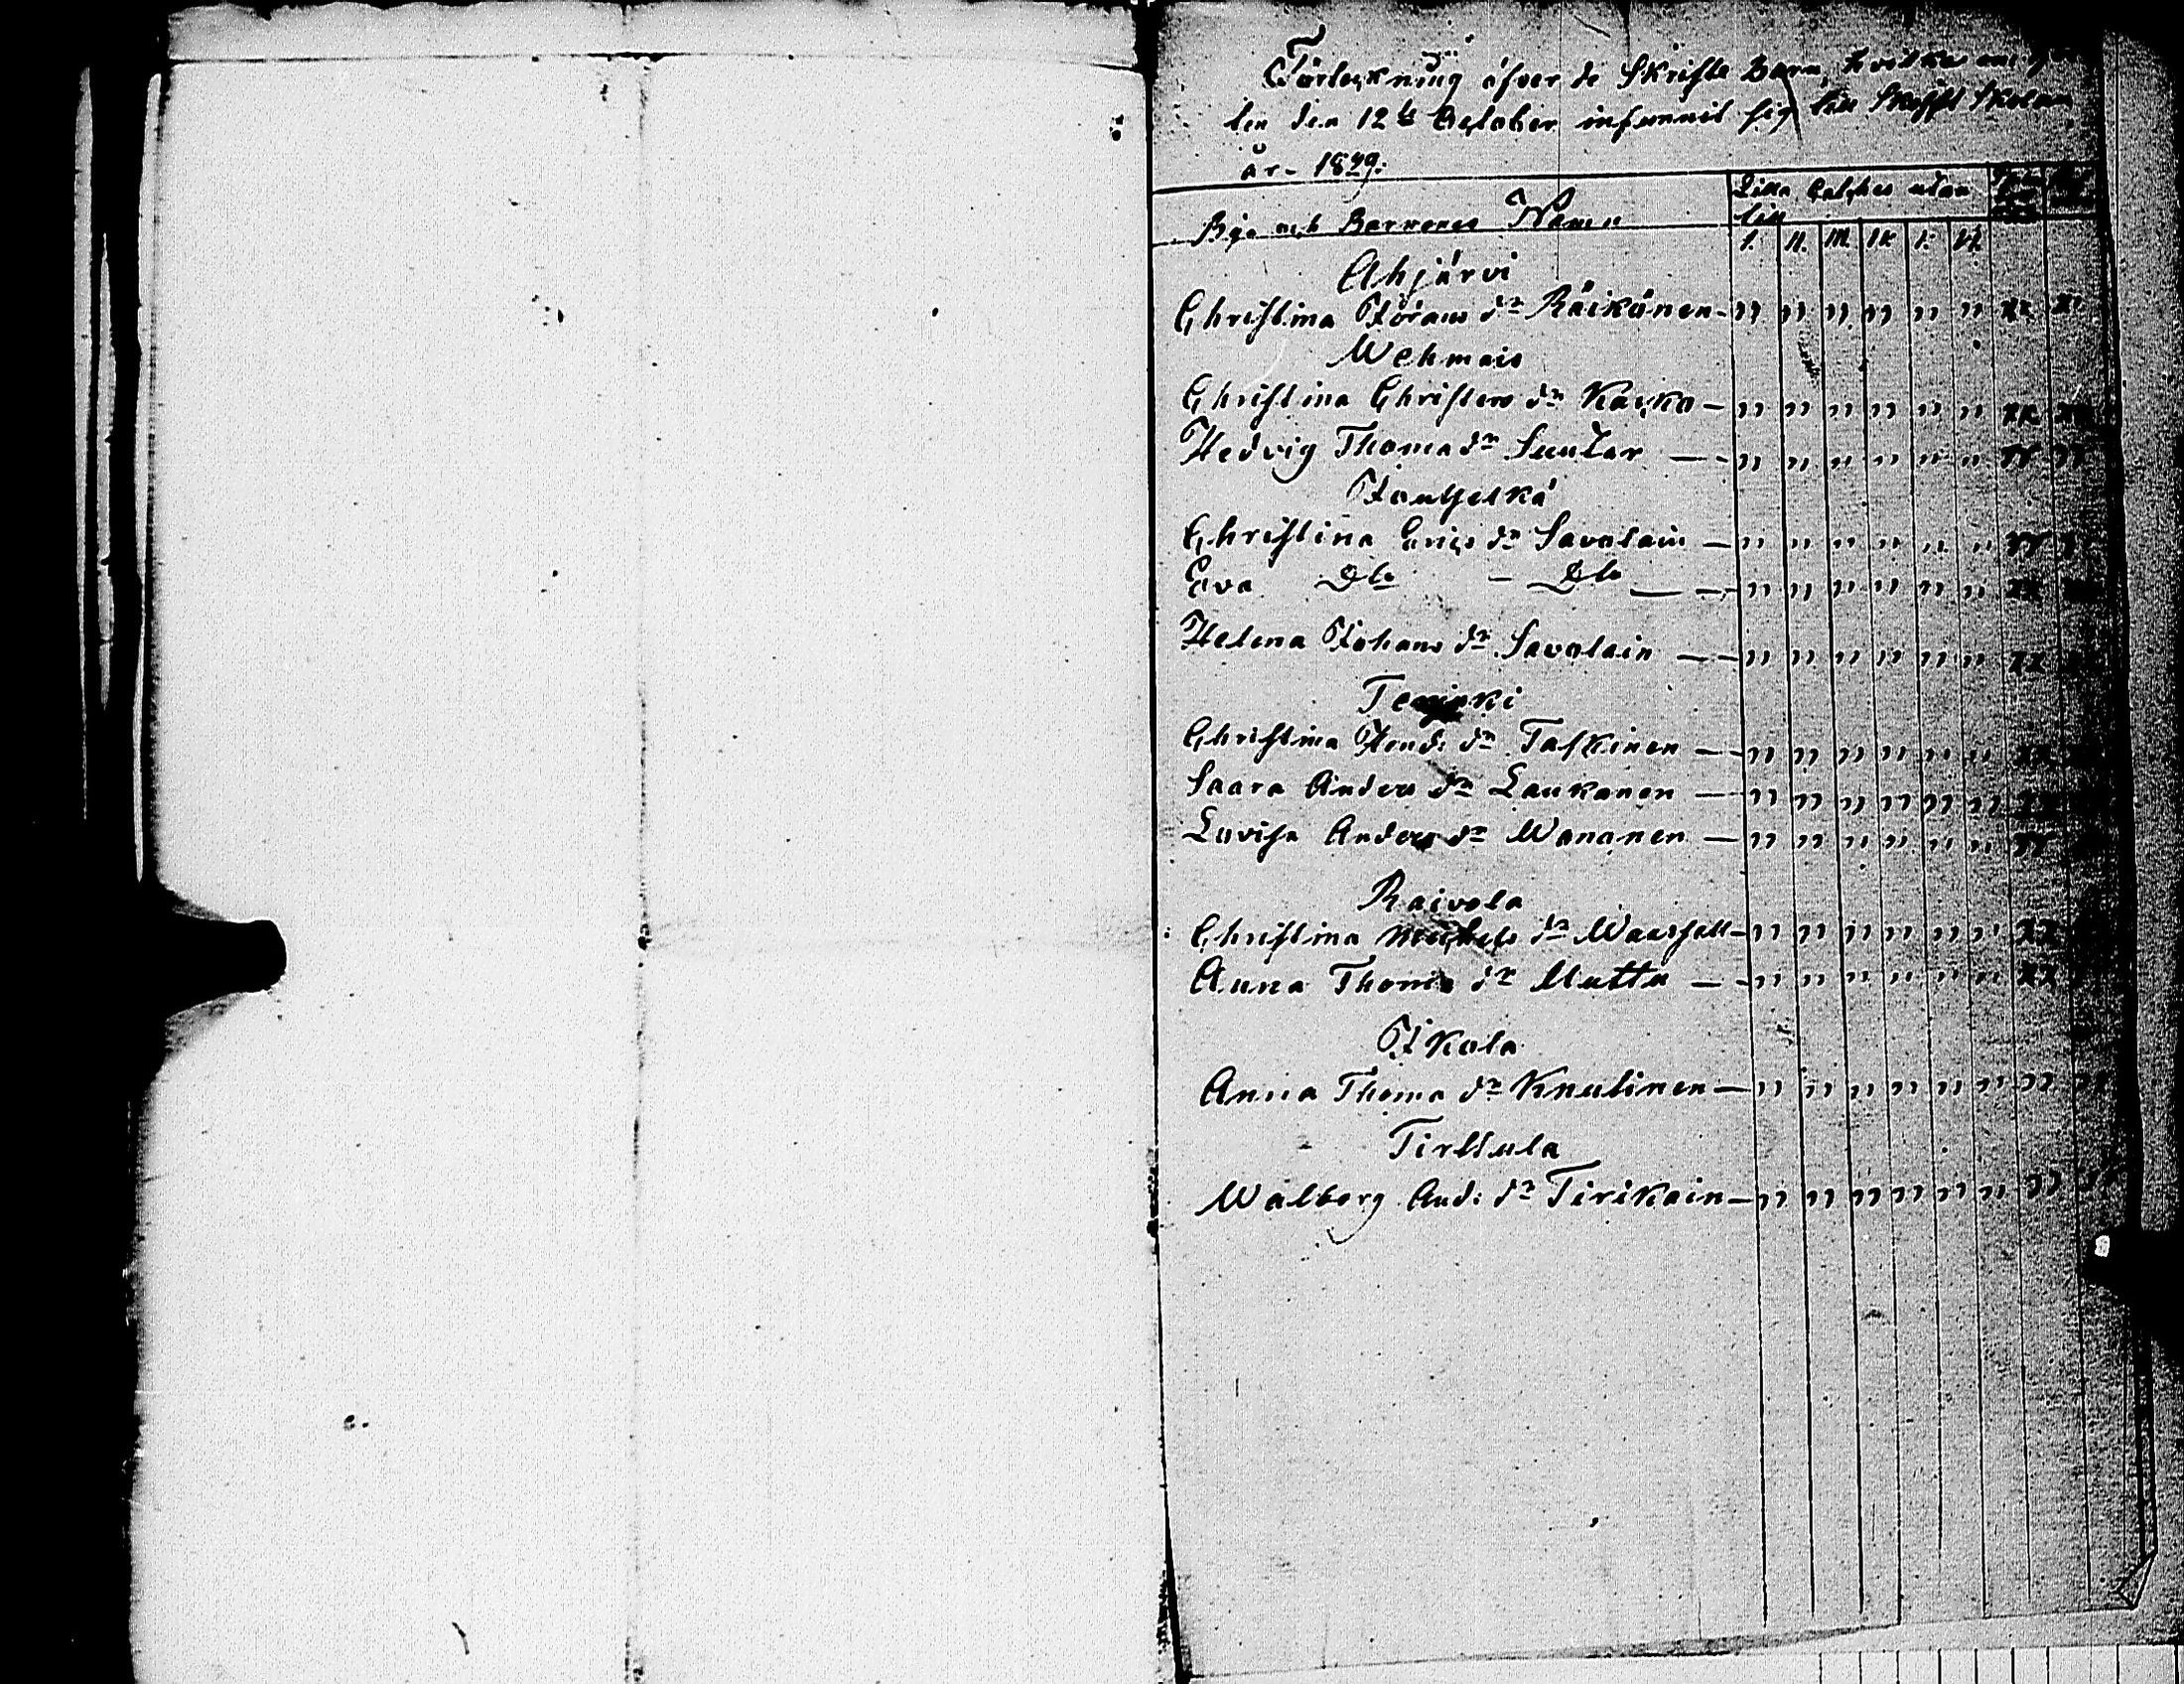 Förteckning öfver de Skrifte Barn, hvilka
ten den 12te October infunnit sig till Skrift Skolan
år 1829.
Bys och Barnenes Namn
Lilla Catches utan
till
I. II. III. IV V. VI.
Ahjärvi
Christina Görans dr Räikönen — " " " " " " xx
Wehmais
Christina Christers dr Kaiko — " " " " " " xx
Hedvig Thoma dr Suutar — " " " " " "
Joutselkä
Christina Erics dr Savolain — " " " " " "
Eva Dto — Dto — " " " " " " xx
Helena Johans dr Savolain — " " " " " " xx
Christina Hend: dr Taskinen — " " " " " " xx
Saara Anders dr Laukanen — " " " " " " xx
Lovisa Anders dr Wänänen — " " " " " "
Raivola
Christina Michels dr — " " " " " " xx
Anna Thoma dr Mutta — " " " " " " xx
Ikola
Anna Thoma dr Knutinen — " " " " " " "
Tirttula
Walborg And: dr Tirikain — " " " " " " "